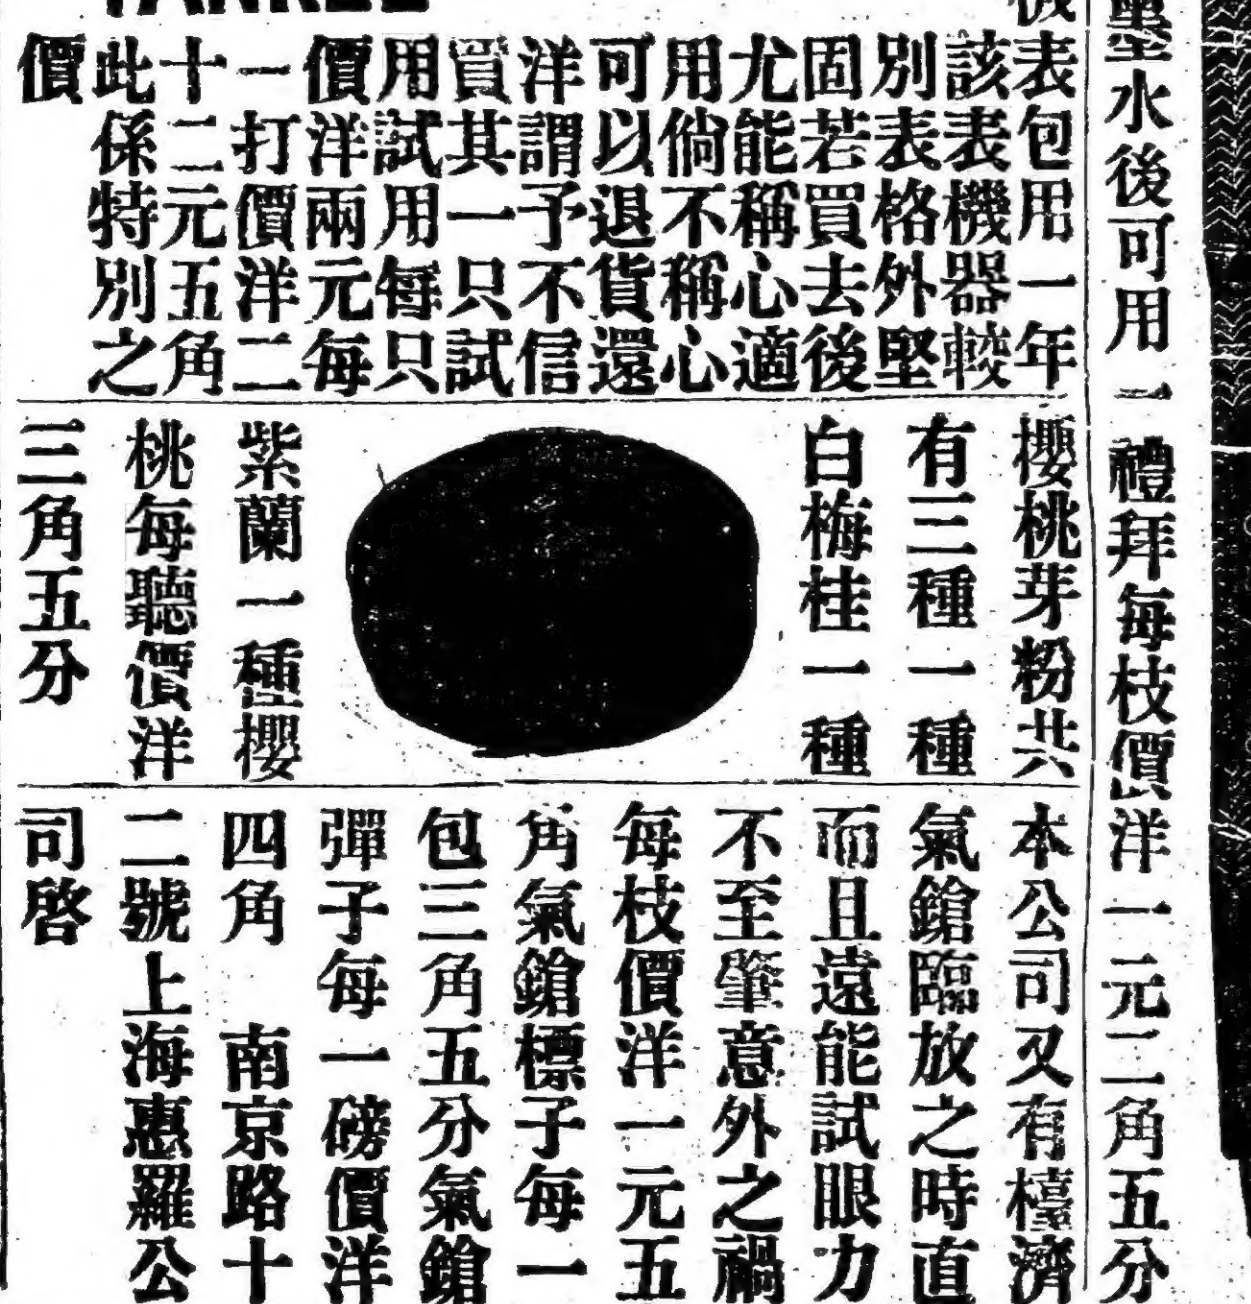 墨水後可用一禮拜每枝價洋一元二角五分
YANKEE
表包用一年
該表機器較
別表格外堅
固若買去後
尤能稱心適
用倘不稱心
可以退貨還
洋謂予不信
買其一只試
用試用每只
價洋兩元每
一打價洋二
十二元五角
此係特別之
價
櫻桃芽粉共
有三種一種
白梅桂一種
紫蘭一種櫻
桃每聽價洋
三角五分
本公司又有檯濟
氣鎗臨放之時直
而且遠能試眼力
不至肇意外之禍
每枝價洋一元五
角氣鎗標子每一
包三角五分氣鎗
彈子每一磅價洋
四角 南京路十
二號上海惠羅公
司啓